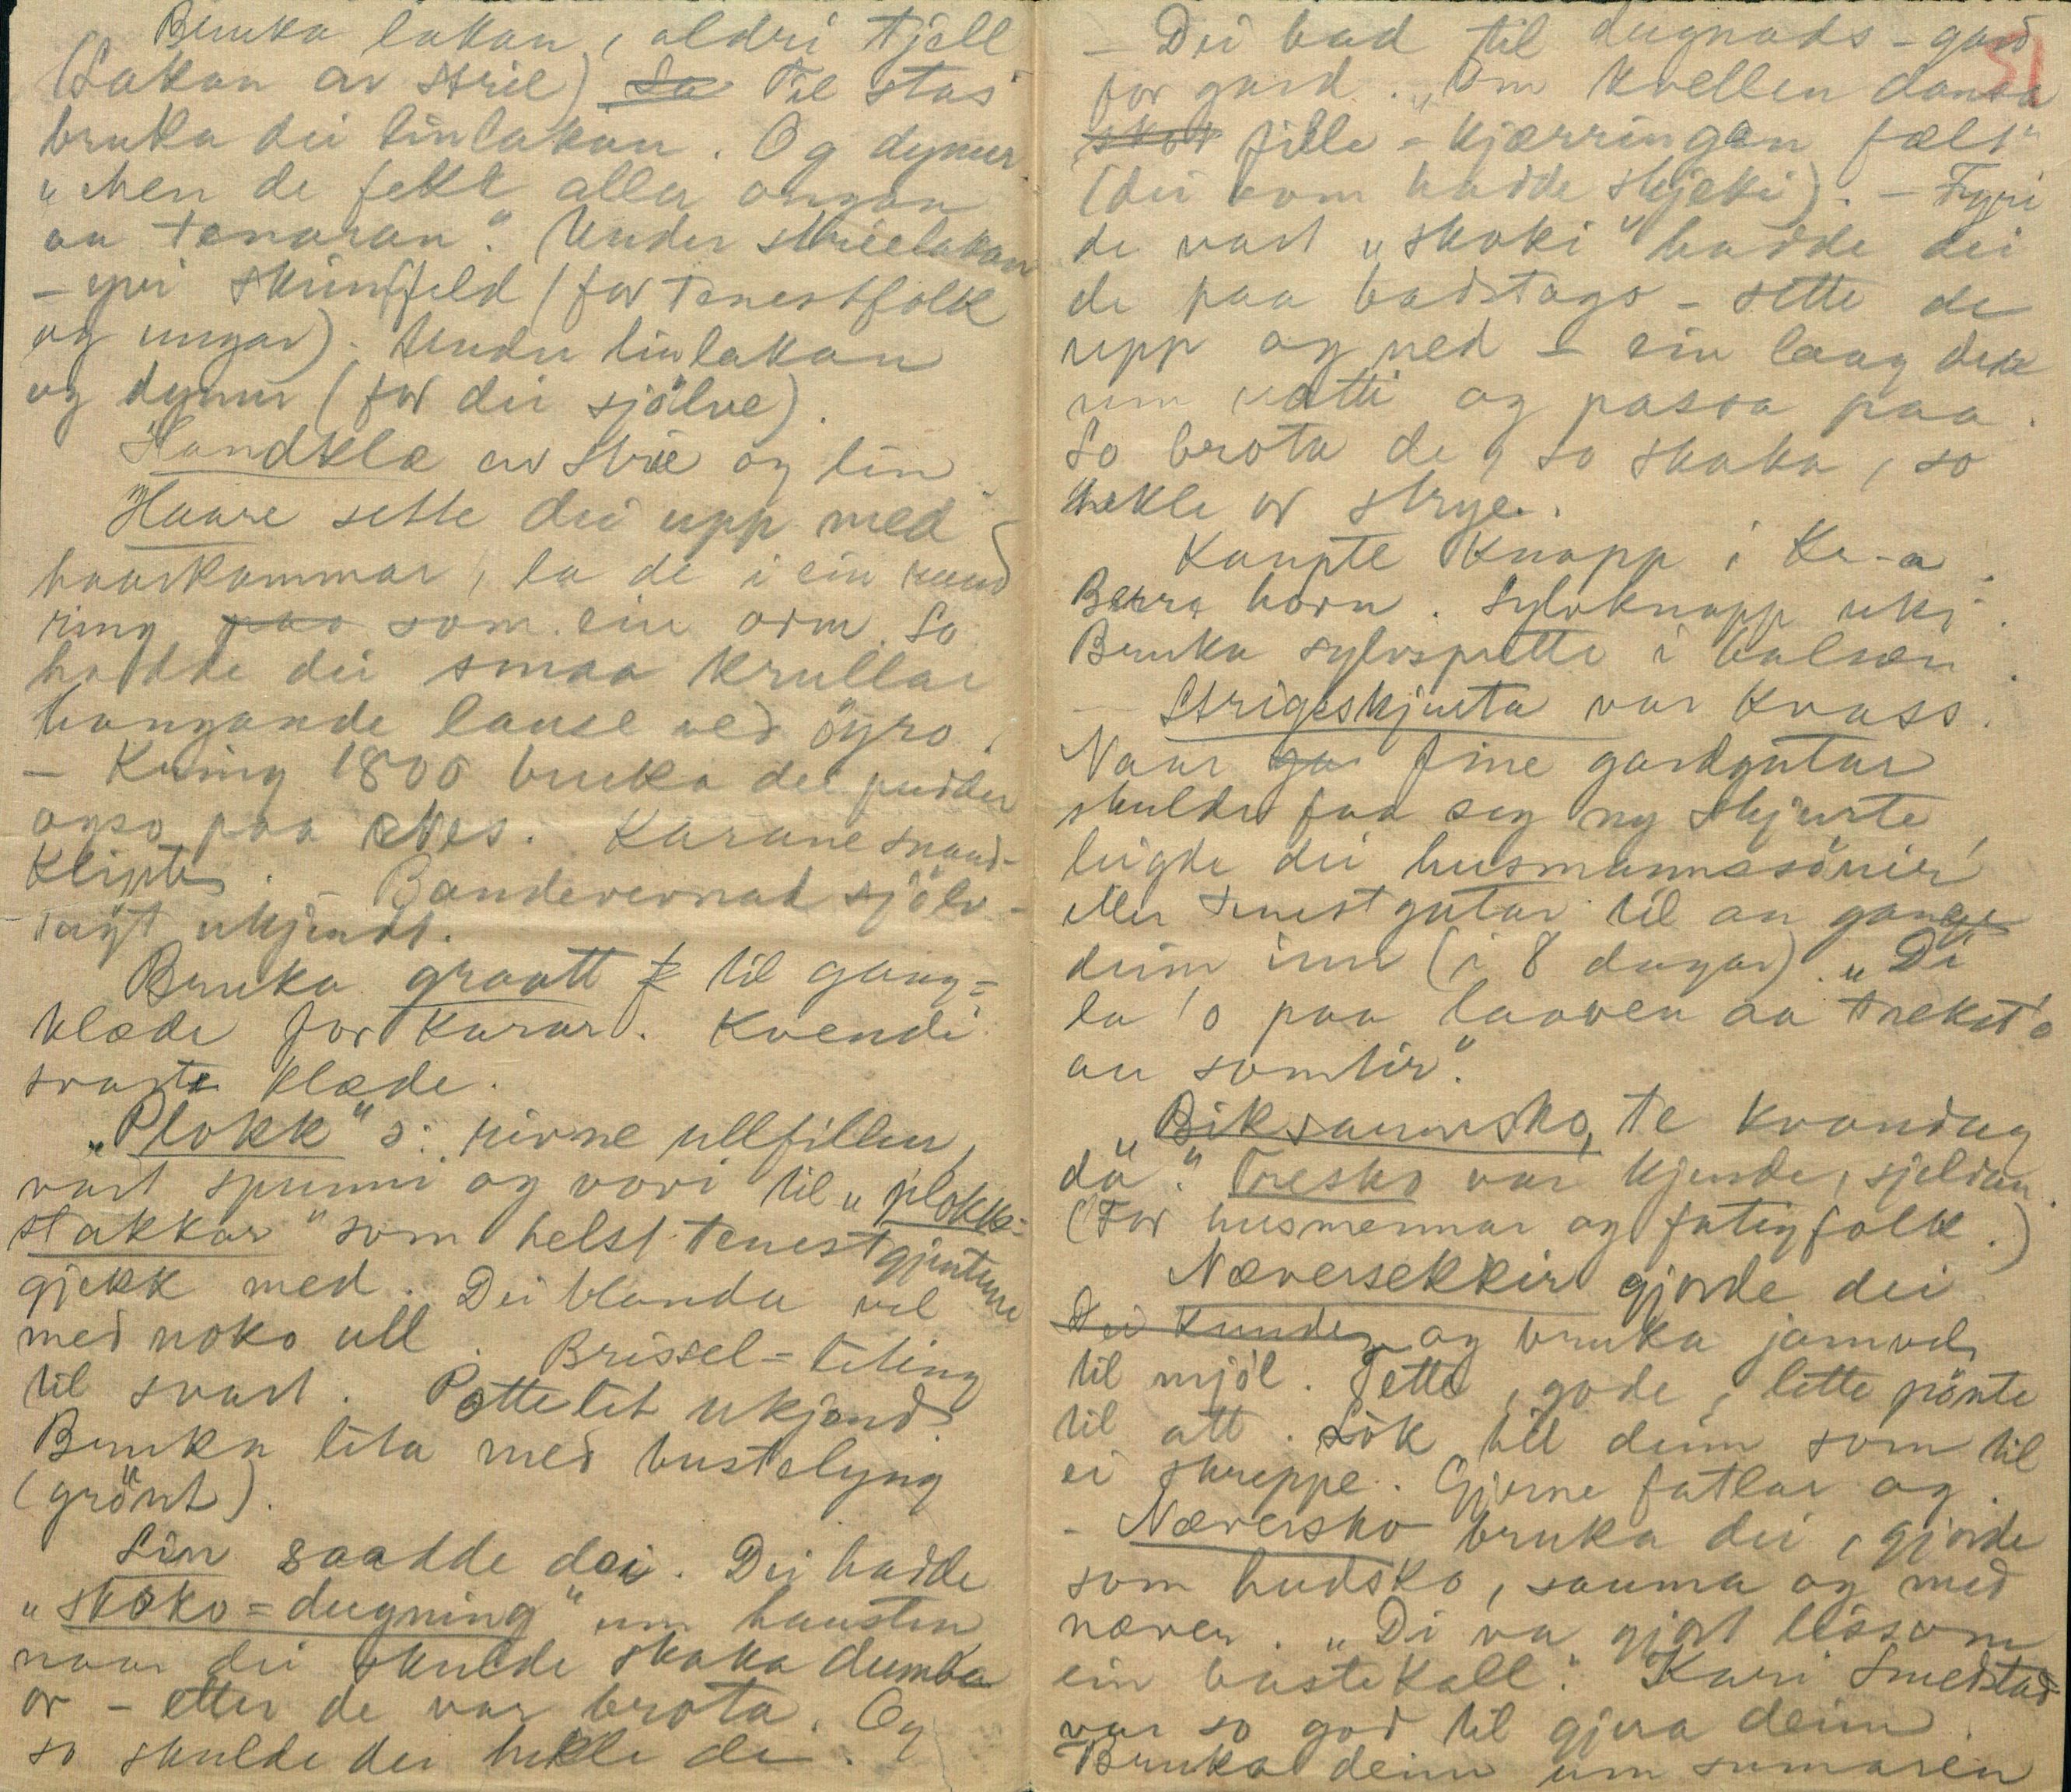 Bruka lakan, aldri tjell
(Lakan av strie) So Til stas
bruka dei linlakan. Og dynur
"Men de fekk aller ongan
aa tenaran". Under strielakan
- yvi skinnfeld (for tenestfolk
og ungar). Under linlakan
og dynur (for dei sjölve).
Handklæ av strie og lin.
Haare sette dei upp med
haarkammar, la de i ein rund
ring paa som ein orm. So
hadde dei smaa krullar
hangande lause ved öyro.
- Kring 1800 bruka dei pudder
ogso paa Nes. Karane snaud-
klipte. - Bandevevnad sjölv-
sagt ukjendt.
Bruka graatt k til gang=
klæde for karar. Kvendi
svarte klæde.
"Plokk" ɔ: rivne ullfillur,
vart spunni og vovi til "plokk-
stakkar" som helst tenestgjentune
gjekk med. Dei blanda vel
med noko ull. Brissel=liting
til svart. Pottelit ukjend.
Bruka lita med bustelyng
(grönt).
Lin saadde dei. Dei hadde
"skoko=dugning" um hausten
naar dei skulde skaka dumba
or - etter de var brota. Og
so skulde dei hekle de.
51
- Dei bad til dugnads - gard
for gard. "Om kvellen dansa
skok fille-kjærringen fælt"
(dei som hadde skjeki). - Fyri
de vart "skoki" hadde dei
de paa badstogo - sette de
upp og ned - ein laag der
um natti og passa paa.
So brota de, so skaka, so
hekle or strye.
Kaupte knapp i Kr-a.
Berre horn. Sylvknapp ukj.
Bruka sylvspratte i halsen.
- Strigeskjurta var kvass.
Naar ga fine gardgutar
skulde faa seg ny skjurte,
leigde dei husmannssönir
eller tenestgutar til an gange
deim inn (i 8 dagar). "Di
la 'o paa laaven aa trekst 'o
au somtir".
"Biksaumsko, te kvardag
då". Tresko var kjende, sjeldan.
(For husmennar og fatigfolk.)
Næversekkir gjorde dei
Dei kunde og bruka jamvel
til mjöl. Tette, gode, lette pönte
til att. Lok till deim som til
ei skreppe. Gjerne fatlar og.
- Næversko bruka dei, gjorde
som hudsko, sauma og med
næver. "Di va gjort lissom
ein bastekall". Kari Smedstad
var so god til gjera deim.
Bruka deim um sumaren